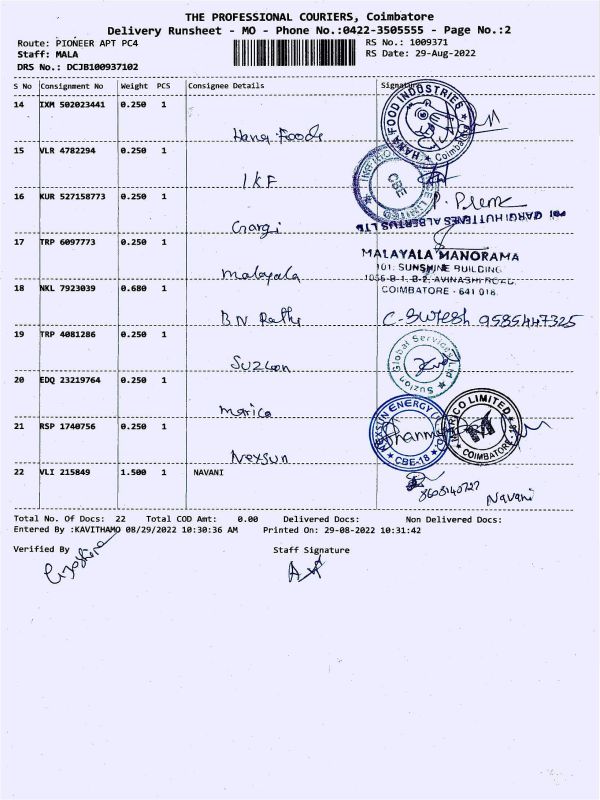 THE PROFESSIONAL COURIERS, Coimbatore
Delivery Runsheet - MO - Phone No.:0422-3505555 - Page No.:2
Route: PIONEER APT PC4 RS No.: 1009371
Staff: MALA RS Date: 29-Aug-2022
DRS No.: DCJB100937102
S No Consignment No Weight PCS Consignee Details Signature
14 IXM 502023441 0.250 1
Hana Foods
HANA FOOD INDUSTRIES
Coimbatore
15 VLR 4782294 0.250 1
IKF
CBE
16 KUR 527158773 0.250 1 P. Prem
Gargi
GARGI HUTTENES ALBERTUS LTD
17 TRP 6097773 0.250 1
MALAYALA MANORAMA
101, SUNSHINE BUILDING
1056-B-1, B-2, AVINASHI ROAD,
COIMBATORE - 641 018.
Malayala
18 NKL 7923039 0.680 1
BN Rathi C. Suresh 9585447325
19 TRP 4081286 0.250 1
Suzlon
Suzlon Global Services Ltd
20 EDQ 23219764 0.250 1
Marico
MARICO LIMITED
COIMBATORE - 18
21 RSP 1740756 0.250 1
Nexsun
NEXSUN ENERGY
CBE-18
22 VLI 215849 1.500 1 NAVANI
8608140727 Navani
Total No. Of Docs: 22 Total COD Amt: 0.00 Delivered Docs: Non Delivered Docs:
Entered By :KAVITHAMO 08/29/2022 10:30:36 AM Printed On: 29-08-2022 10:31:42
Verified By Staff Signature